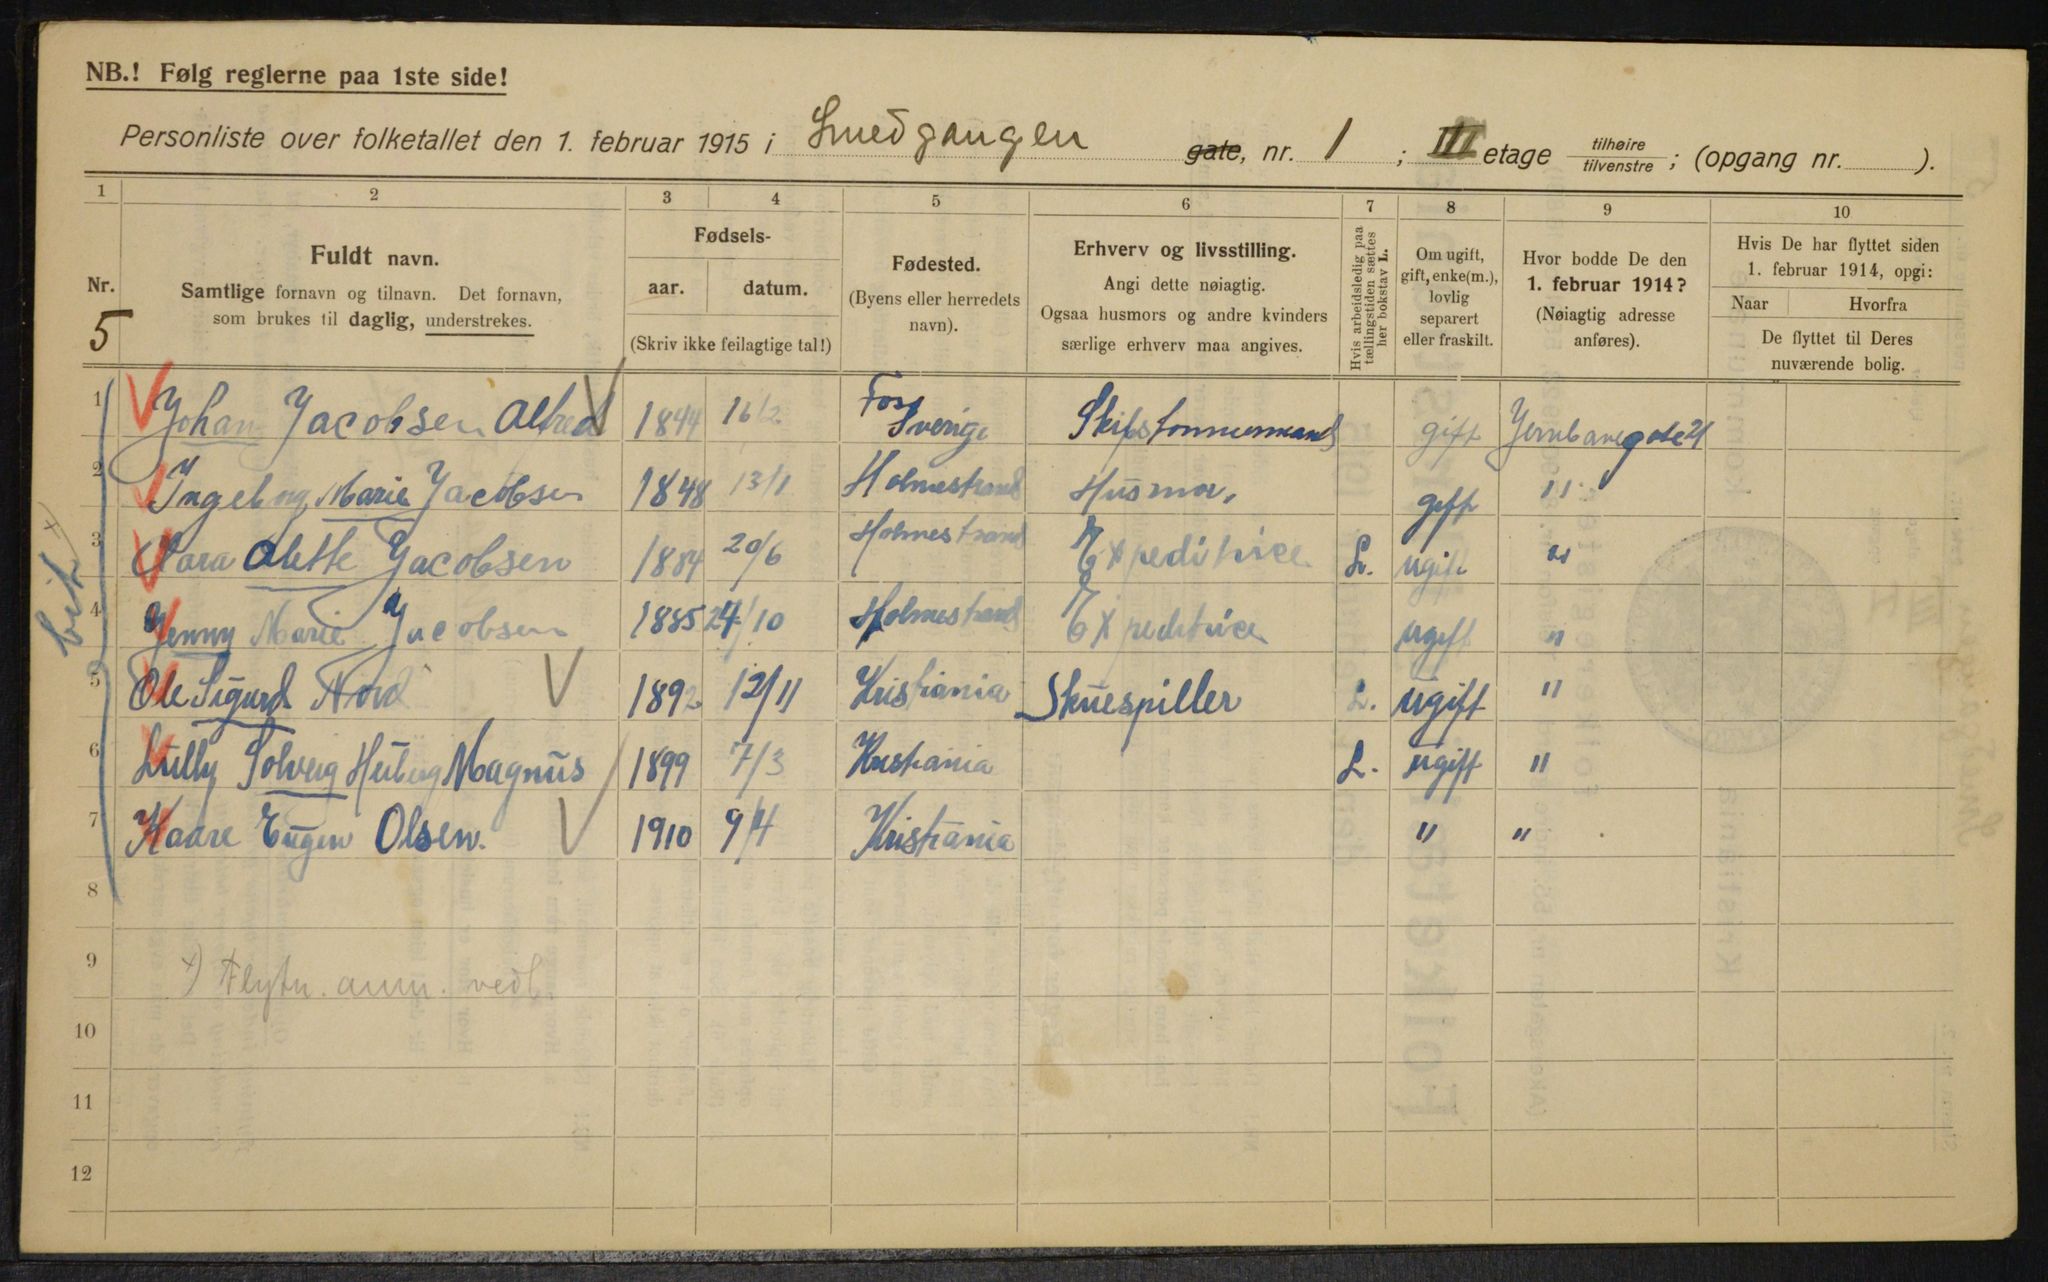 NB.! Følg reglerne paa 1ste side!
Personliste over folketallet den 1. februar 1915 i Smedgangen gate, nr. 1 ; III etage tilhøire/tilvenstre ; (opgang nr. ).
1 2 3 4 5 6 7 8 9 10
Nr. 5
Fuldt navn.
Samtlige fornavn og tilnavn. Det fornavn,
som brukes til daglig, understrekes.
Fødsels-
aar. datum.
(Skriv ikke feilagtige tal!)
Fødested.
(Byens eller herredets
navn).
Erhverv og livsstilling.
Angi dette nøiagtig.
Ogsaa husmors og andre kvinders
særlige erhverv maa angives.
Hvis arbeidsledig paa
tællingstiden sættes
her bokstav L.
Om ugift,
gift, enke(m.),
lovlig
separert
eller fraskilt.
Hvor bodde De den
1. februar 1914?
(Nøiagtig adresse
anføres).
Hvis De har flyttet siden
1. februar 1914, opgi:
Naar Hvorfra
De flyttet til Deres
nuværende bolig.
1 Johan Jacobsen Alfred 1844 16/2 Foss Sverige Skibstømmermand gift Jernbanegate 21
2 Ingeborg Marie Jacobsen 1848 13/1 Holmestrand Husmor. gift "
3 Clara Alette Jacobsen 1884 20/6 Holmestrand Expeditrice L. ugift "
4 Jenny Marie Jacobsen 1885 24/10 Holmestrand Expeditrice ugift "
5 Ole Sigurd Nord 1892 12/11 Kristiania Skuespiller L. ugift "
6 Lully Solveig Heiberg Magnus 1899 7/3 Kristiania L. ugift "
7 Kaare Eugen Olsen. 1910 9/4 Kristiania " "
8
9
x) Flytn. anm. vedl
10
11
12